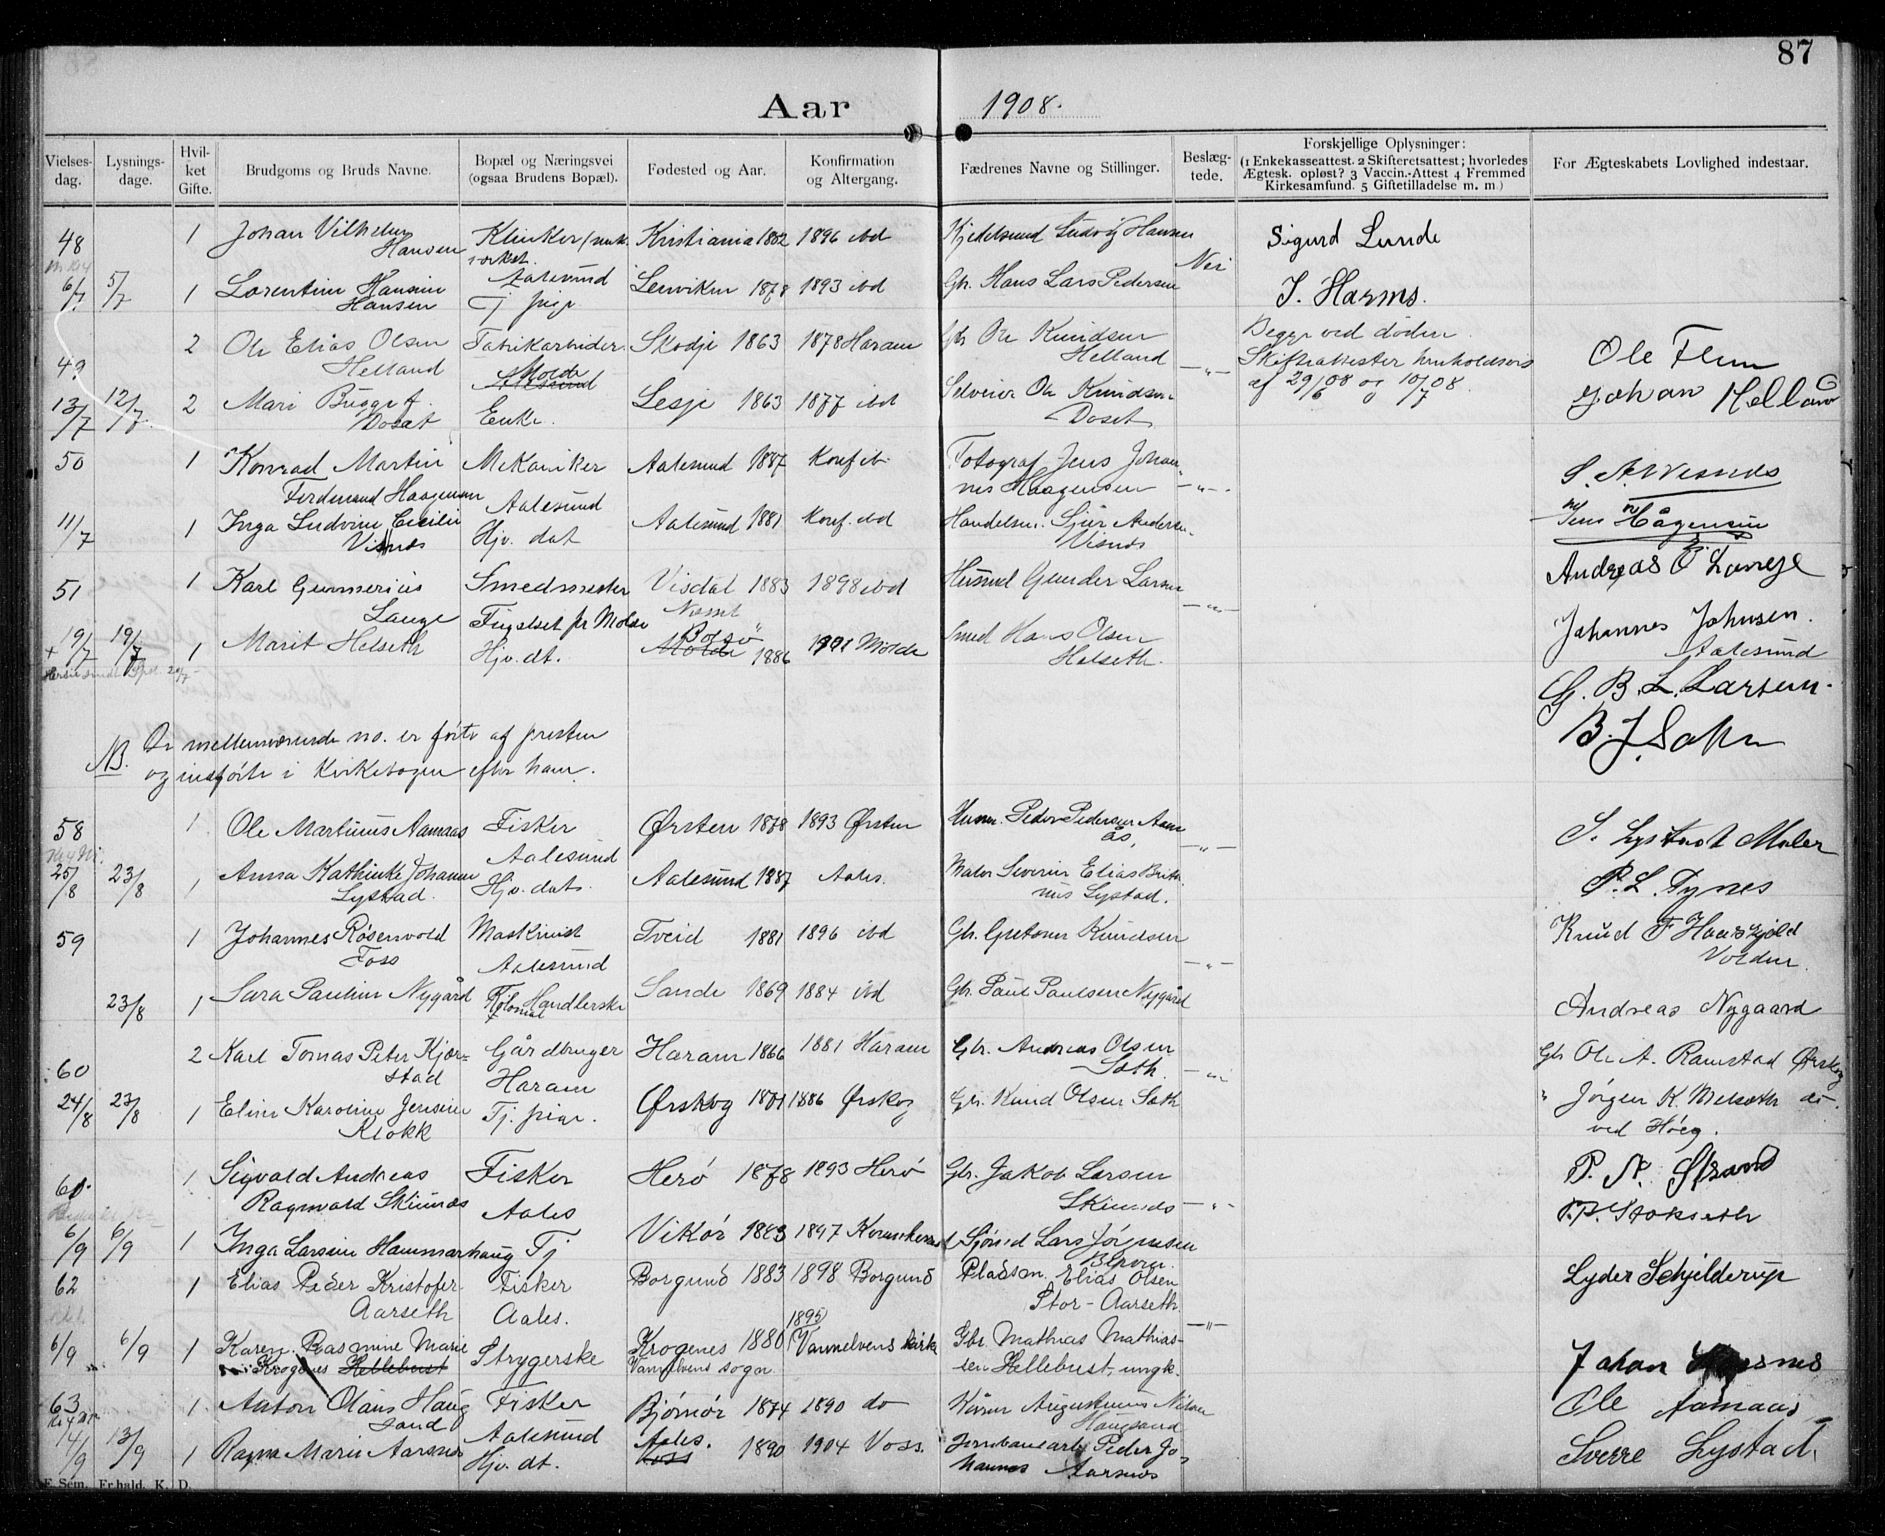 87
Aar 1908.
Vielses-dag. Lysnings-dage. Hvil-ket Gifte. Brudgoms og Bruds Navne. Bopæl og Næringsvei (ogsaa Brudens Bopæl). Fødested og Aar. Konfirmation og Altergang. Fædrenes Navne og Stillinger. Beslæg-tede. Forskjellige Oplysninger: (1 Enkekasseattest. 2 Skifteretsattest; hvorledes Ægtesk. opløst? 3 Vaccin.-Attest 4 Fremmed Kirkesamfund. 5 Giftetilladelse m. m.) For Ægteskabets Lovlighed indestaar.
48 1 Johan Vilhelm Hansen Klinker Kristiania 1882 1896 ibd Kjedelsmed Ludvig Hansen Sigurd Lunde
Aalesund Nei
6/7 5/7 1 Lorentine Hansine Hansen Tj pige Lenviken 1878 1893 ibd Gbr. Hans Lars Pedersen J. Harms.
49 2 Ole Elias Olsen Helland Fabrikarbeider Molde Skodje 1863 1878 Haram Gbr Ole Knudsen Helland Begge ved døden. Skifteattester
af 29/6 08 og 10/7 08. Ole Flem
13/7 12/7 2 Mari Bugge f. Doset Enke. Lesje 1863 1877 ibd Selveier Ole Knudsen Doset Johan Helland
50 1 Konrad Martin Ferdinand Haagensen Mekaniker Aalesund Aalesund 1887 Konf ib. Fotograf Jens Johannes Haagensen S. A. Visnes
11/7 1 Inga Ludvine Cecilie Visnes Hjv. dat Aalesund 1881 Konf. ibd Handelsm. Sjur Andersen Visnes Jens Hågensen
51 1 Karl Gunnerius Lange Smedmester Visdal 1883 Nesset 1898 ibd Husmd Gunder Larsen Andreas O Lange
Fugelset pr Molde Johannes Johnsen.
19/7 19/7 1 Marit Helseth Hjv. dt. Bolsø Molde 1886 1901 Molde Smed Hans Olsen Helseth. Aalesund
G. B. L. Larsen.
NB. De mellemværende no. er førte af presten
og indførte i Kirkebogen efter ham.
58 1 Ole Martinus Aamaas Fisker Ørsten 1878 1893 Ørsten Husm. Peder Pedersen Aamås, S. Lystad Maler
Aalesund
25/8 23/8 1 Anna Kathinke Johanne Lystad. Hjv. dat. Aalesund 1887 Aales. Maler Severin Elias Lystad. P. L. Tynes
59 1 Johannes Rosenvold Foss Maskinist Aalesund Tveid 1881 1896 ibd Gbr. Knudsen Knud F Haaskjold Volden.
23/8 1 Sara Pauline Nygård Kolonial Handlerske Sande 1869 1884 ibd Gbr. Paul Paulsen Nygård Andreas Nygaard
60 2 Karl Tomas Peter Kjørstad Gårdbruger Haram Haram 1866 1881 Haram Gbr. Andreas Olsen Gbr Ole A. Ramstad Ørskog
24/8 23/8 1 Eline Karoline Jensine Klokk Tj. pige. Ørskog 1871 1886 Ørskog Gbr. Knud Olsen " Jørgen K. Melseth do.
ved Høeg.
61. 1 Sigvald Andreas Ragnvald Skinnes Fisker Aales Herø 1878 1893 Herø Gbr. Jakob Larsen Skinnes P. N. Strand
6/9 6/9 1 Inga Larsine Hammarhaug Tj Vikør 1883 1897 Sjømd Lars
62 1 Elias Peder Kristofer Aarseth Fisker Aales. Borgund 1883 1898 Borgund Pladsm. Elias Olsen Stor-Aarseth. Lyder Schjelderup
6/9 6/9 1 Karen Rasmine Marie Krogenes Hellebust Strygerske Krogenes 1880 Vannelvens sogn 1895 Vannelvens kirke Gbr Mathias Mathiassen Hellebust, ungk. Johan
63 1 Anton Olaus Haugsand Fisker Aalesund Bjørnør 1874 1890 do Augustinus Nilsen Haugsand Ole Aamaas
14/9 13/9 1 Ragna Marie Aarsnes Hjv. dt. Aales. Voss 1890 1904 Voss. Jernbanearb. Peder Johannes Aarsnes Sverre Lystad.